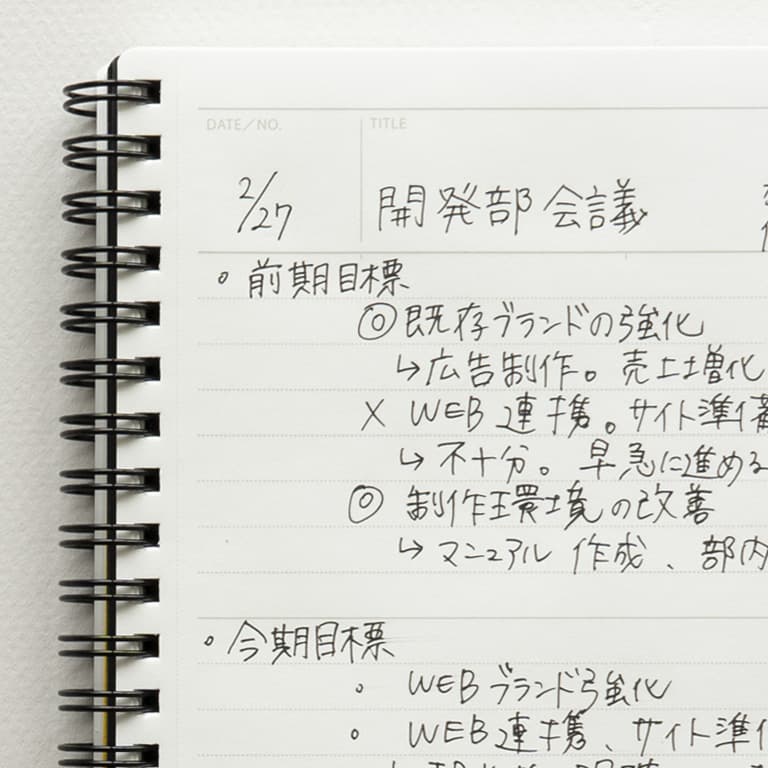 DATE/NO.
TITLE
2/27 開発部会議
。前期目標
◎既存ブランドの強化
↳広告制作。売上増化
× WEB連携。サイト準備
↳不十分。早急に進める
◎ 制作環境の改善
↳マニュアル 作成、部内
・今期目標
。WEBブランド強化
。WEB連携、サイト準備